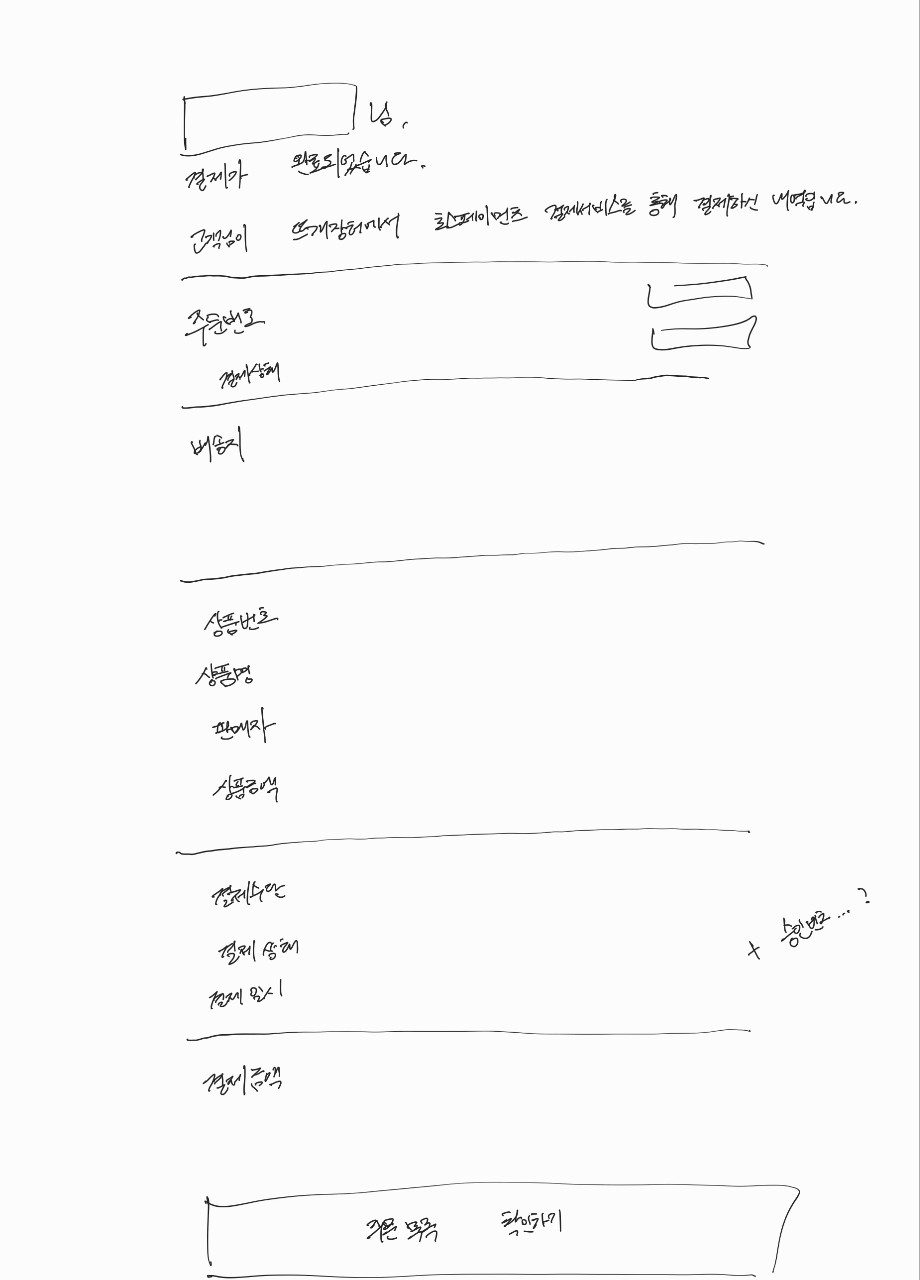 님.
결제가 완료되었습니다.
고객님이 뜨개장터에서 토스페이먼츠 결제서비스를 통해 결제하신 내역입니다.
주문번호
결제상태
배송지
상품번호
상품명
판매자
상품금액
결제수단
결제 상태
+ 승인번호...?
결제 일시
결제 금액
주문 목록 확인하기